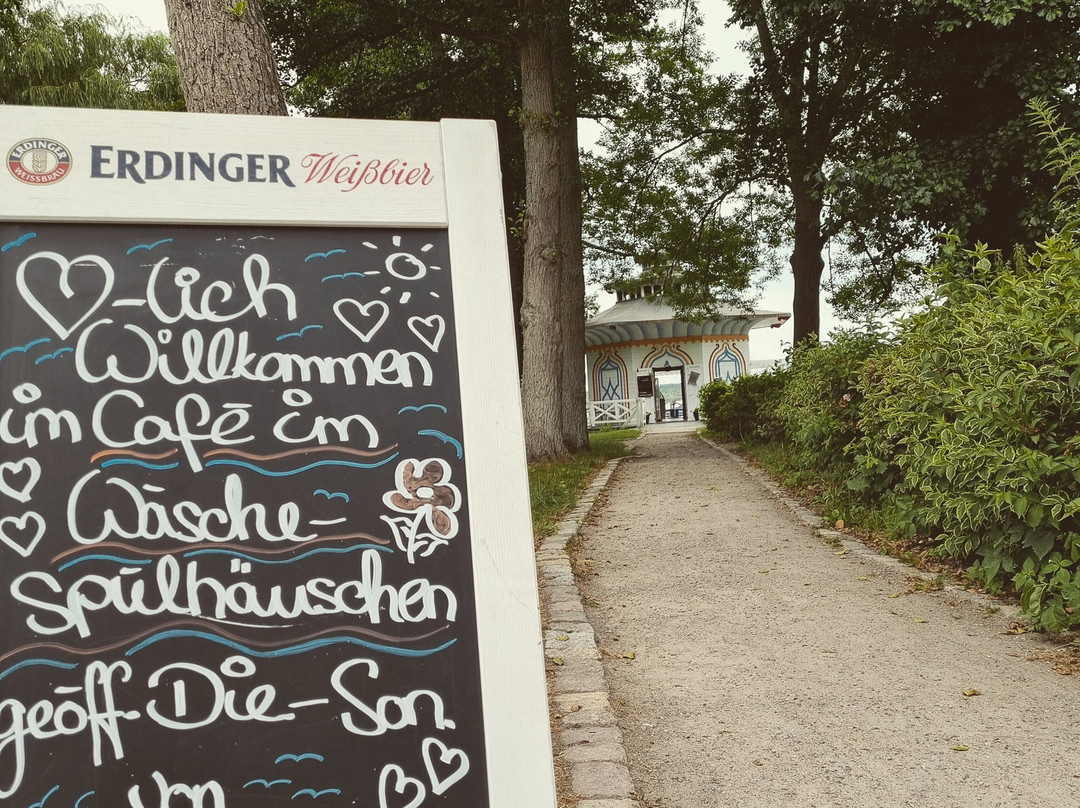 ERDINGER
WEISSBRÄU
ERDINGER Weißbier
-lich
Willkommen
im Café im
Wäsche-
Spülhäuschen
geöff. Die-Son.
von